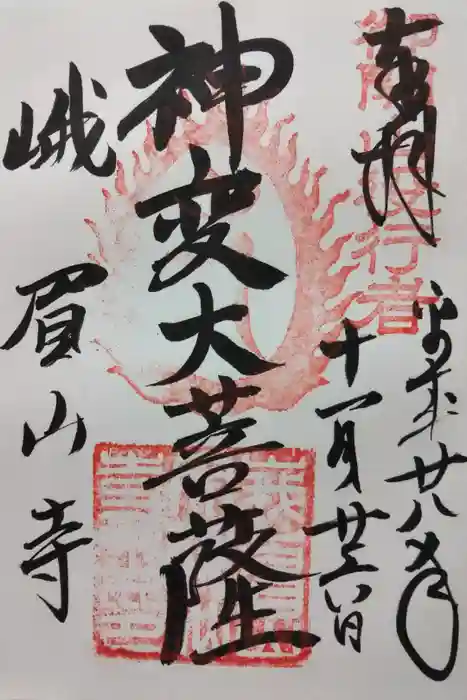 奉拝
平成廿八年
十一月廿六日
神変大菩薩
峨眉山寺
役行者